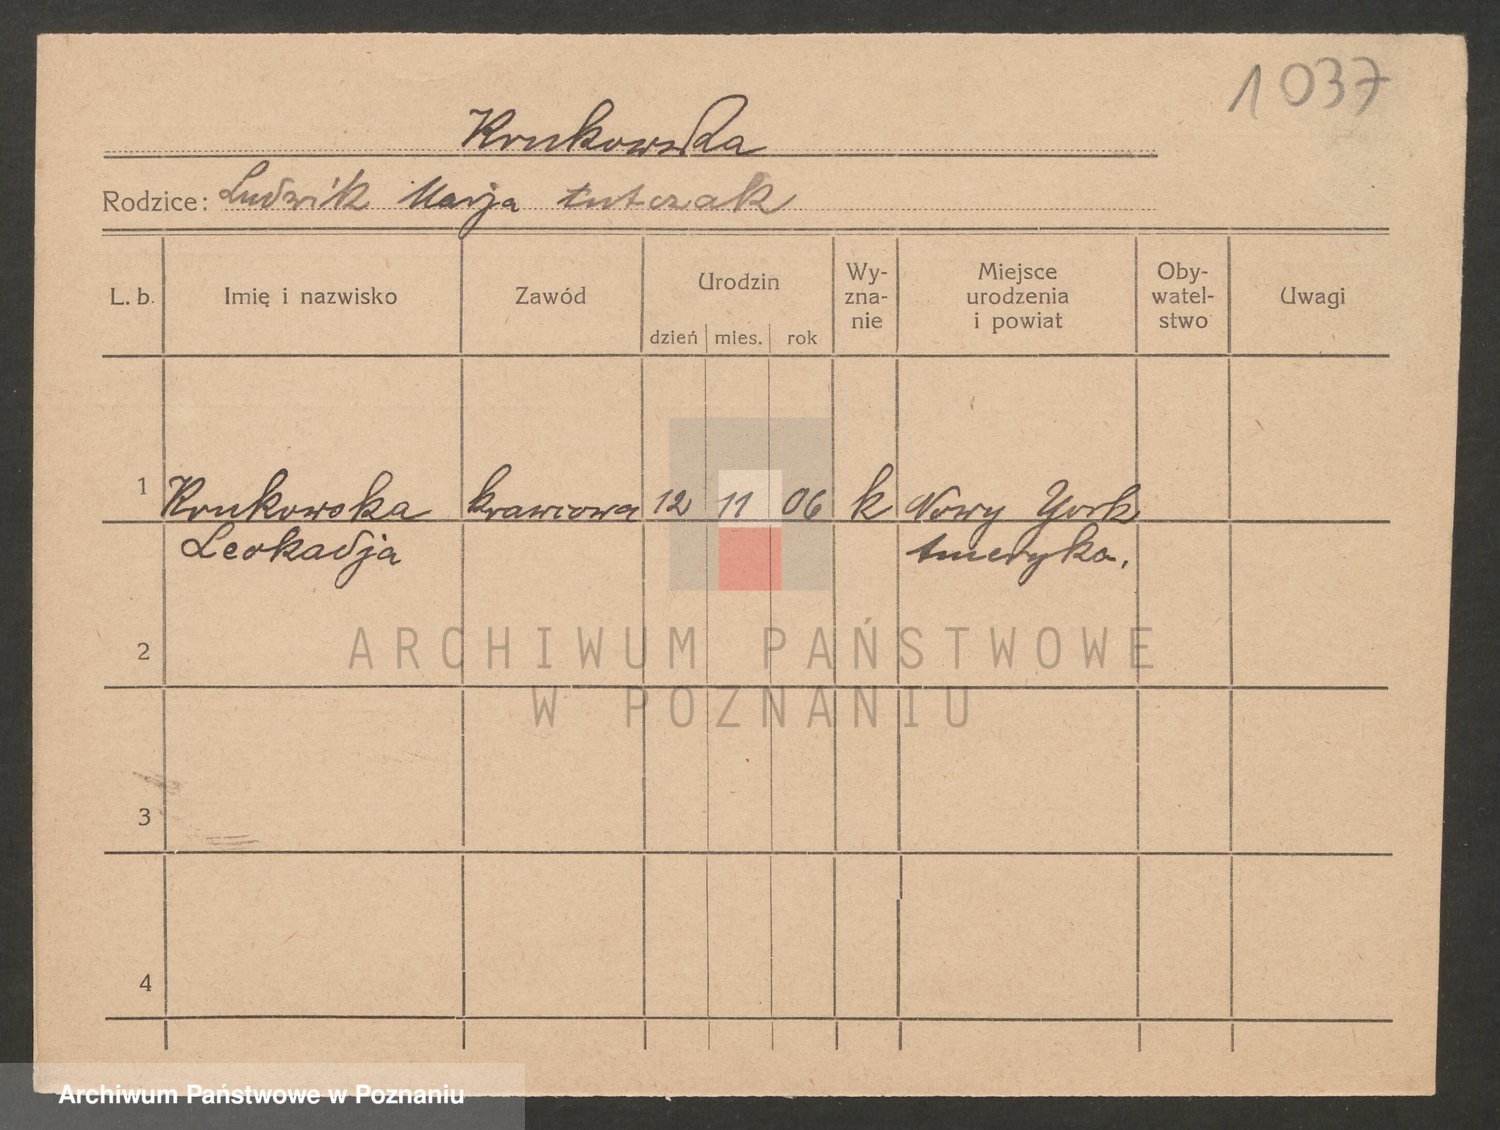 1037
Krukowska
Rodzice: Ludwik Marja Antczak
L. b. Imię i nazwisko Zawód Urodzin dzień mies. rok Wy-zna-nie Miejsce urodzenia i powiat Oby-watel-stwo Uwagi
1 Krukowska krawcowa 12 11 06 k Nowy York
Leokadja Ameryka.
2
ARCHIWUM PAŃSTWOWE
W POZNANIU
3
4
Archiwum Państwowe w Poznaniu